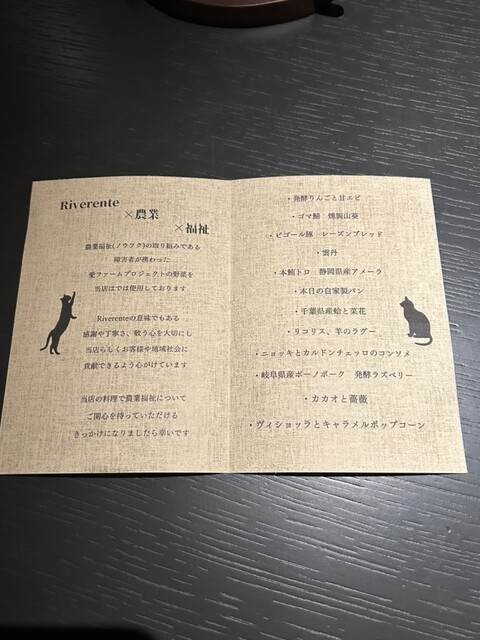 Riverente
×農業
×福祉
農業福祉(ノウフク)の取り組みである
障害者が携わった
愛ファームプロジェクトの野菜を
当店はでは使用しております
Riverenteの意味でもある
感謝や丁寧さ、敬う心を大切にし
当店らしくお客様や地域社会に
貢献できるよう心がけています
当店の料理で農業福祉について
ご関心を持っていただける
きっかけになりましたら幸いです
・発酵りんごと甘エビ
・ゴマ鯖 燻製山葵
・ビゴール豚 レーズンブレッド
・雲丹
・本鮪トロ 静岡県産アメーラ
・本日の自家製パン
・千葉県産蛤と菜花
・リコリス、羊のラグー
・ニョッキとカルドンチェッロのコンソメ
・岐阜県産ボーノポーク 発酵ラズベリー
・カカオと薔薇
・ヴィショッラとキャラメルポップコーン